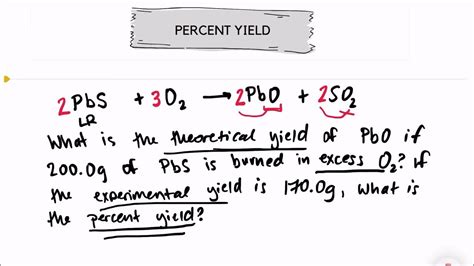 PERCENT YIELD
2PbS + 3O₂ → 2PbO + 2SO₂
LR
What is the theoretical yield of PbO if
200.0g of PbS is burned in excess O₂? If
the experimental yield is 170.0g, what is
the percent yield?